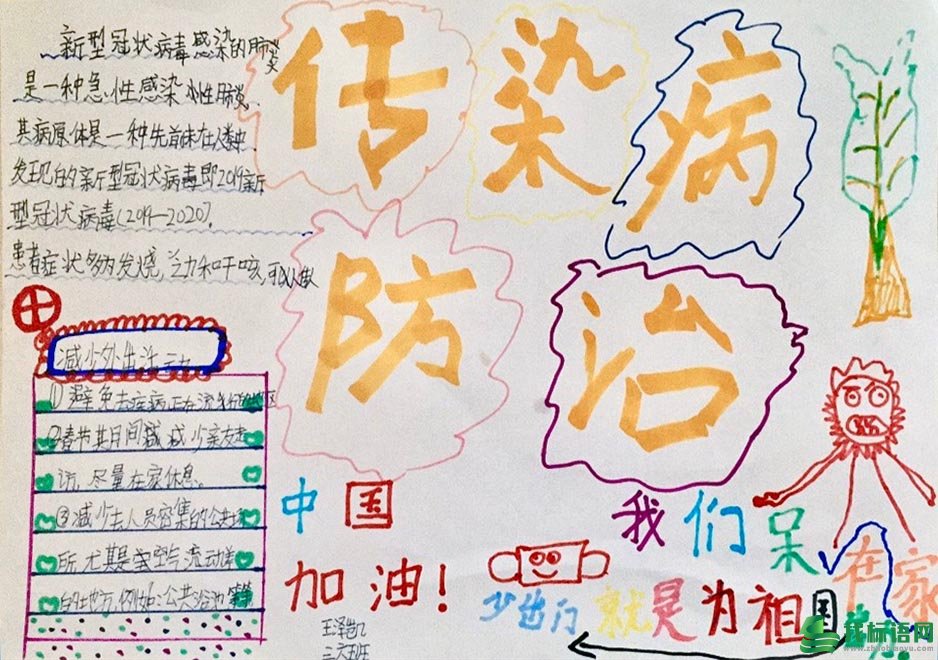 新型冠状病毒感染的肺炎
是一种急性感染性肺炎,
其病原体是一种先前未在人类中
发现的新型冠状病毒即2019新
型冠状病毒(2019—2020),
患者症状多为发烧,乏力和干咳,可以
传染病
防治
减少外出活动
①避免去疾病正在流行的地区
②春节其日间减减少亲友走
访,尽量在家休息。
③减少去人员密集的公共场
所,尤其是空气流动差
的地方,例如:公共浴池
中国
加油!
王泽凯
三六班
我们呆在家
少出门 就是为祖国
我标语网
www.zhaobiaoyu.com